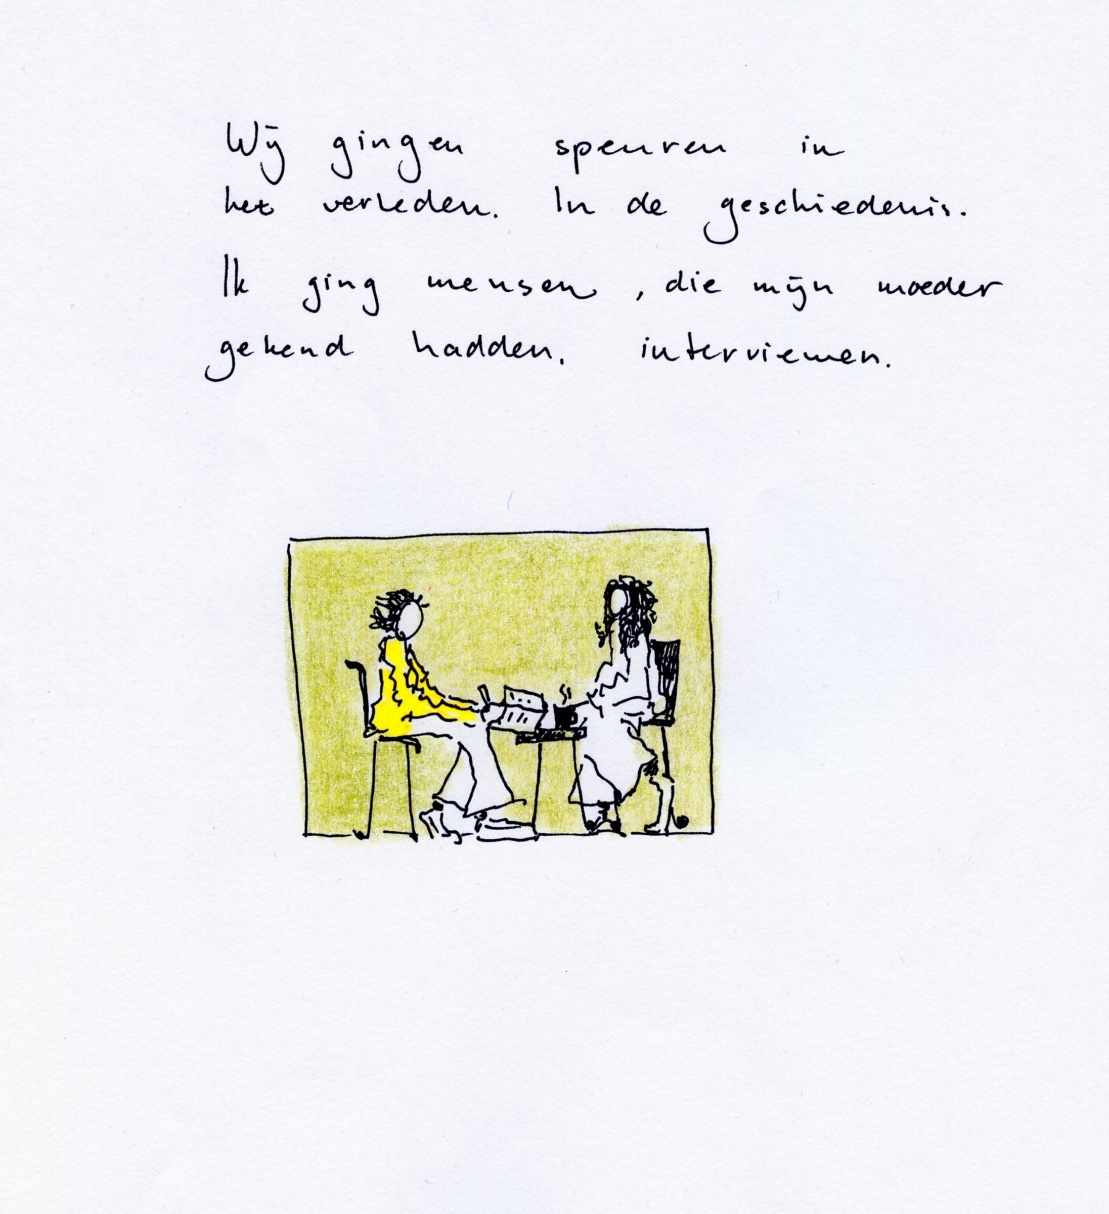 Wij gingen speuren in
het verleden. In de geschiedenis.
Ik ging mensen, die mijn moeder
gekend hadden, interviewen.